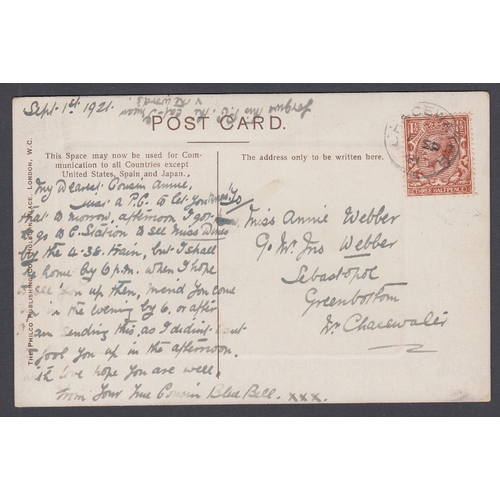 Sept. 1st 1921.
POST CARD.
This Space may now be used for Com-
munication to all Countries except
United States, Spain and Japan.
The address only to be written here.
THE PHILCO PUBLISHING CO., HOLBORN PLACE, LONDON, W.C.
My Dearest Cousin Annie,
Just a P.C. to let you know
that to morrow, afternoon I got
to go to C. Station to see Miss
by the 4.38. train, but I shall
be home by 6 p.m. when I hope
to see you up then, mend you come
up in the evening by 6. or after
I am sending this, as I did'nt want
to fool you up in the afternoon.
with love hope you are well.
from Your True Cousin Blue Bell. xxx.
Miss Annie Webber
c/o Mr. Jno Webber
Sebastopol
Greenbottom
Nr Chacewater
THREE HALFPENCE